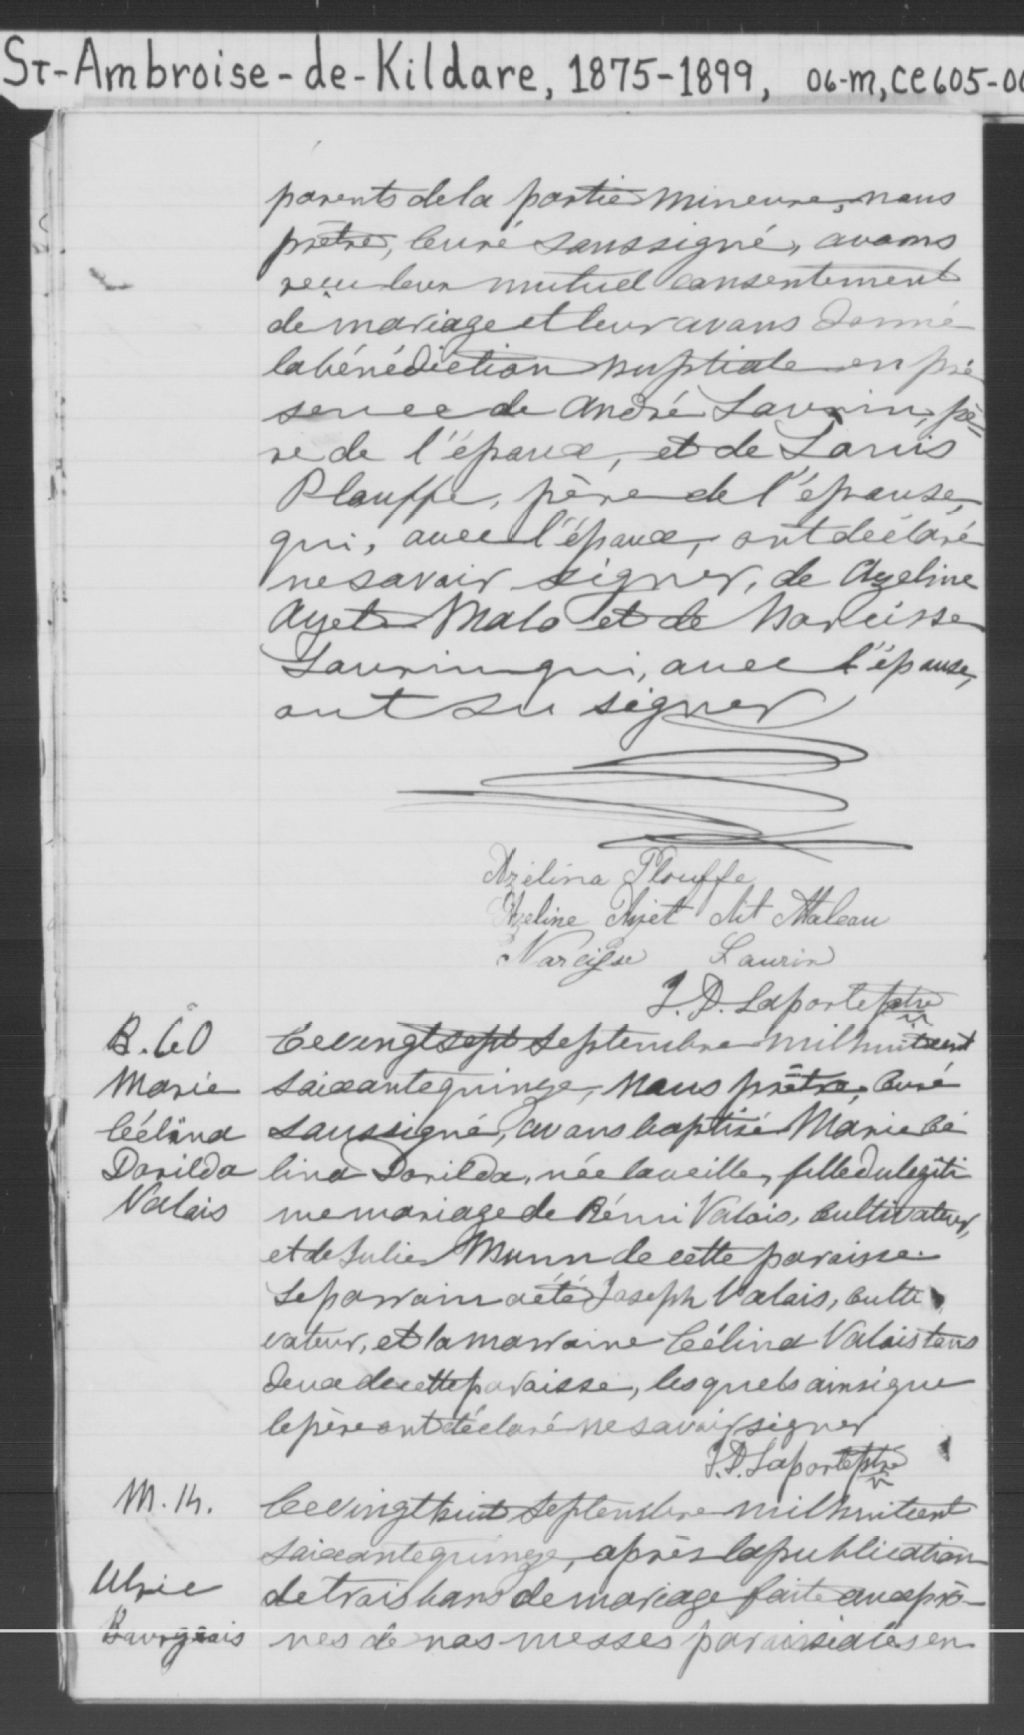 St-Ambroise-de-Kildare, 1875-1899, 06-M, CE605-00
parents de la partie mineure, nous
prêtre, curé soussigné, avons
reçu leur mutuel consentement
de mariage et leur avons donné
la bénédiction nuptiale en pré
sence de André Laurin, pè=
re de l'époux, et de Louis
Plouffe, père de l'épouse,
qui, avec l'époux, ont déclaré
ne savoir signer, de Azeline
Ayet Malo et de Narcisse
Laurin qui, avec l'épouse,
ont su signer
Azélina Plouffe
Azeline Ayet dit Maleau
Narcisse Laurin
J. D. Laporte ptre
B. 60
Marie
Célina
Dorilda
Valois
Ce vingt sept septembre mil huit cent
soixante quinze, nous prêtre, curé
soussigné, avons baptisé Marie Cé
lina Dorilda, née la veille, fille du légiti
me mariage de Rémi Valois, cultivateur,
et de Julie Munn de cette paroisse.
Le parrain a été Joseph Valois, culti
vateur, et la marraine Célina Valois tous
deux de cette paroisse, lesquels ainsi que
le père ont déclaré ne savoir signer
J. D. Laporte ptre
M. 14.
Ulric
Bourgeois
Ce vingt huit septembre mil huit cent
soixante quinze, après la publication
de trois bans de mariage faite aux prô-
nes de nos messes paroissiales en